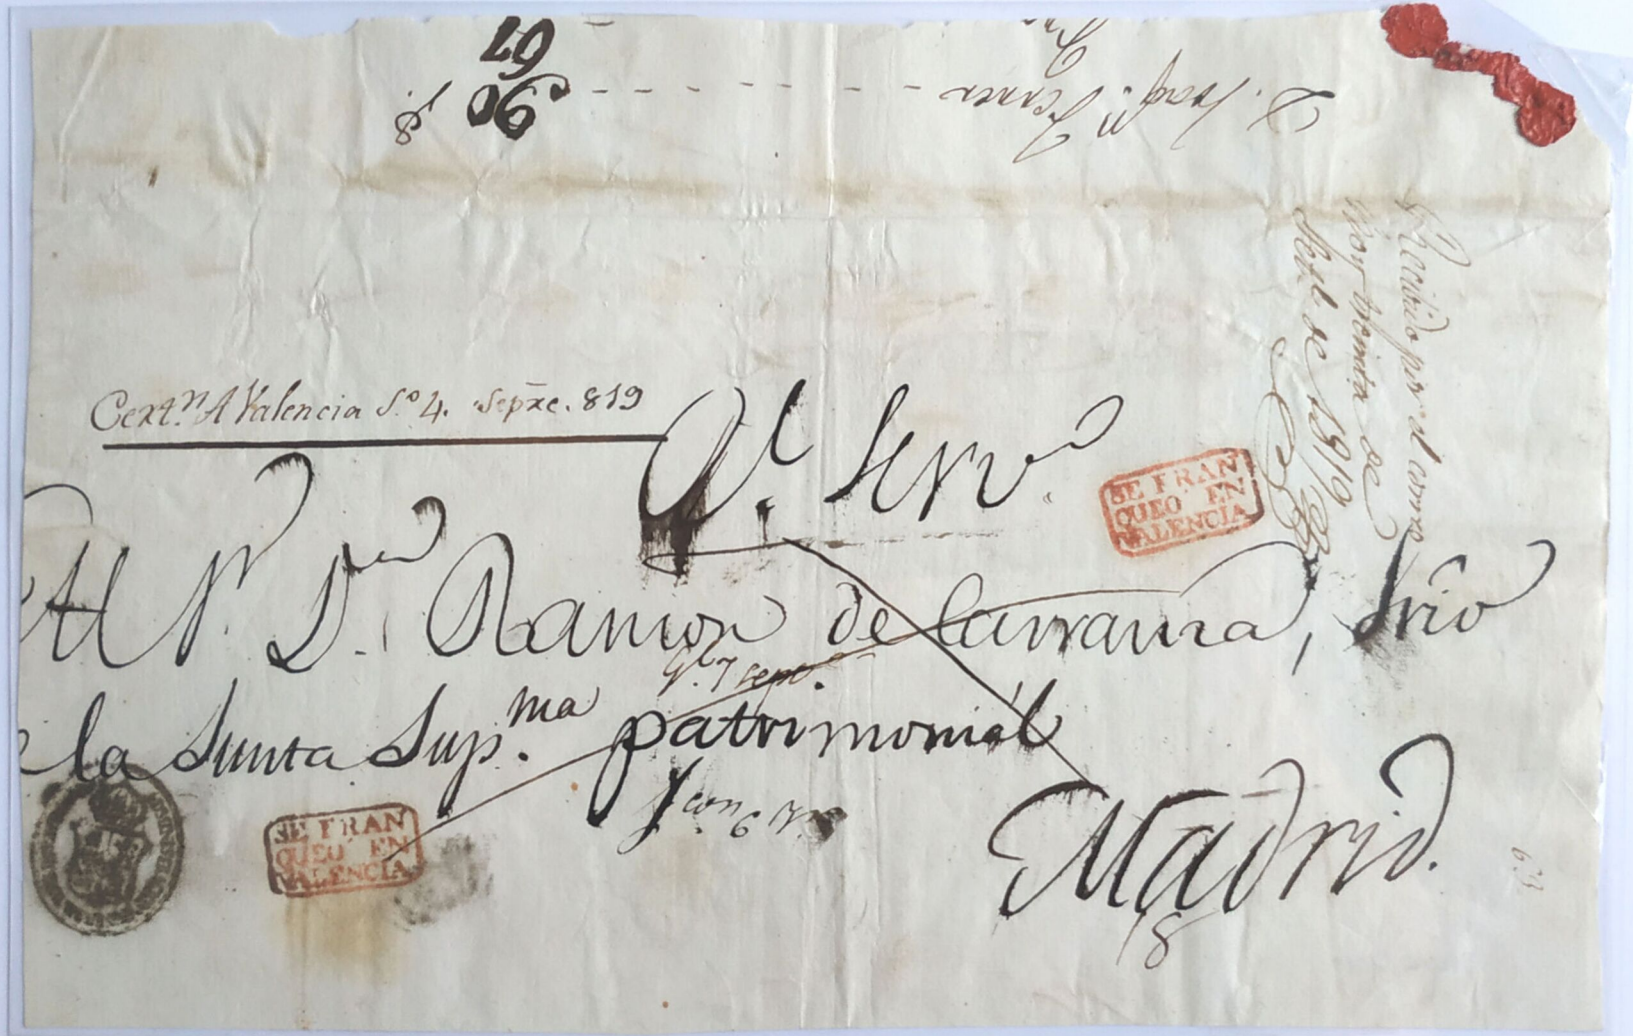 67
90
D. Joaqn. Ferrer
Recibido por el correo
hoy treinta de
Sbre de 1819
Certn. A Valencia So. 4. Sepre. 819
Rl. Servo.
SE FRAN
QUEO EN
VALENCIA
Al Sr. Dn. Ramon de Larranza, Srio
e la Junta Supma. patrimonial
7 sepe.
con 6
SE FRAN
QUEO EN
VALENCIA
Madrid.
8
63